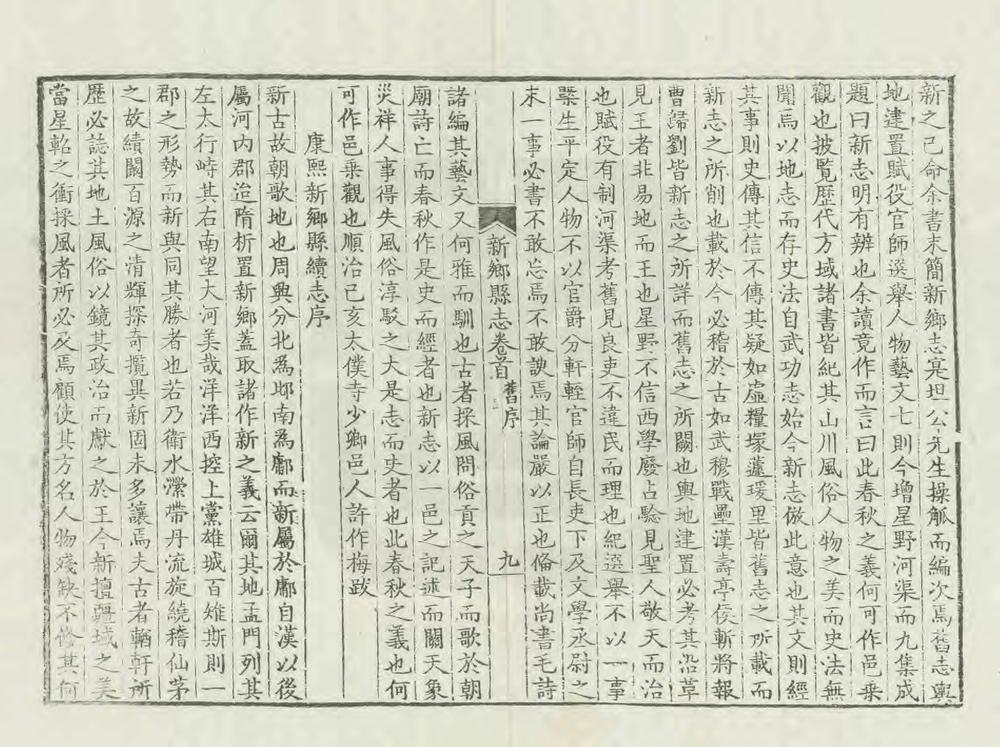 新之己命余書末簡新鄉志寔坦公先生操觚而編次焉舊志輿
地建置賦役官師選舉人物藝文七則今增星野河渠而九集成
題曰新志明有辨也余讀竟作而言曰此春秋之義何可作邑乘
觀也披覧歷代方域諸書皆紀其山川風俗人物之美而史法無
聞焉以地志而存史法自武功志始今新志倣此意也其文則經
其事則史傳其信不傳其疑如虛糧塚蘧瑗里皆舊志之所載而
新志之所削也載於今必稽於古如武穆戰壘漢壽亭侯斬將報
曹歸劉皆新志之所詳而舊志之所闕也輿地建置必考其沿革
見王者非易地而王也星野不信西學廢占驗見聖人敬天而治
也賦役有制河渠考舊見良吏不違民而理也紀選舉不以一事
槩生平定人物不以官爵分軒輊官師自長吏下及文學丞尉之
末一事必書不敢忘焉不敢諛焉其論嚴以正也偹載尚書毛詩
新鄉縣志卷首 舊序
九
諸編其藝文又何雅而馴也古者採風問俗貢之天子而歌於朝
廟詩亡而春秋作是史而經者也新志以一邑之記述而關天象
災祥人事得失風俗淳駁之大是志而史者也此春秋之義也何
可作邑乘觀也順治己亥太僕寺少卿邑人許作梅跋
康熙新鄉縣續志序
新古故朝歌地也周興分北為邶南為鄘而新屬於鄘自漢以後
屬河內郡迨隋析置新鄉蓋取諸作新之義云爾其地孟門列其
左太行峙其右南望大河美哉洋洋西控上黨雄城百雉斯則一
郡之形勢而新與同其勝者也若乃衛水瀠帶丹流旋繞稽仙茅
之故績闢百源之清輝探奇攬異新固未多讓焉夫古者輶軒所
歷必誌其地土風俗以鏡其政治而獻之於王今新擅疆域之美
當星軺之衝採風者所必及焉顧使其方名人物殘缺不脩其何